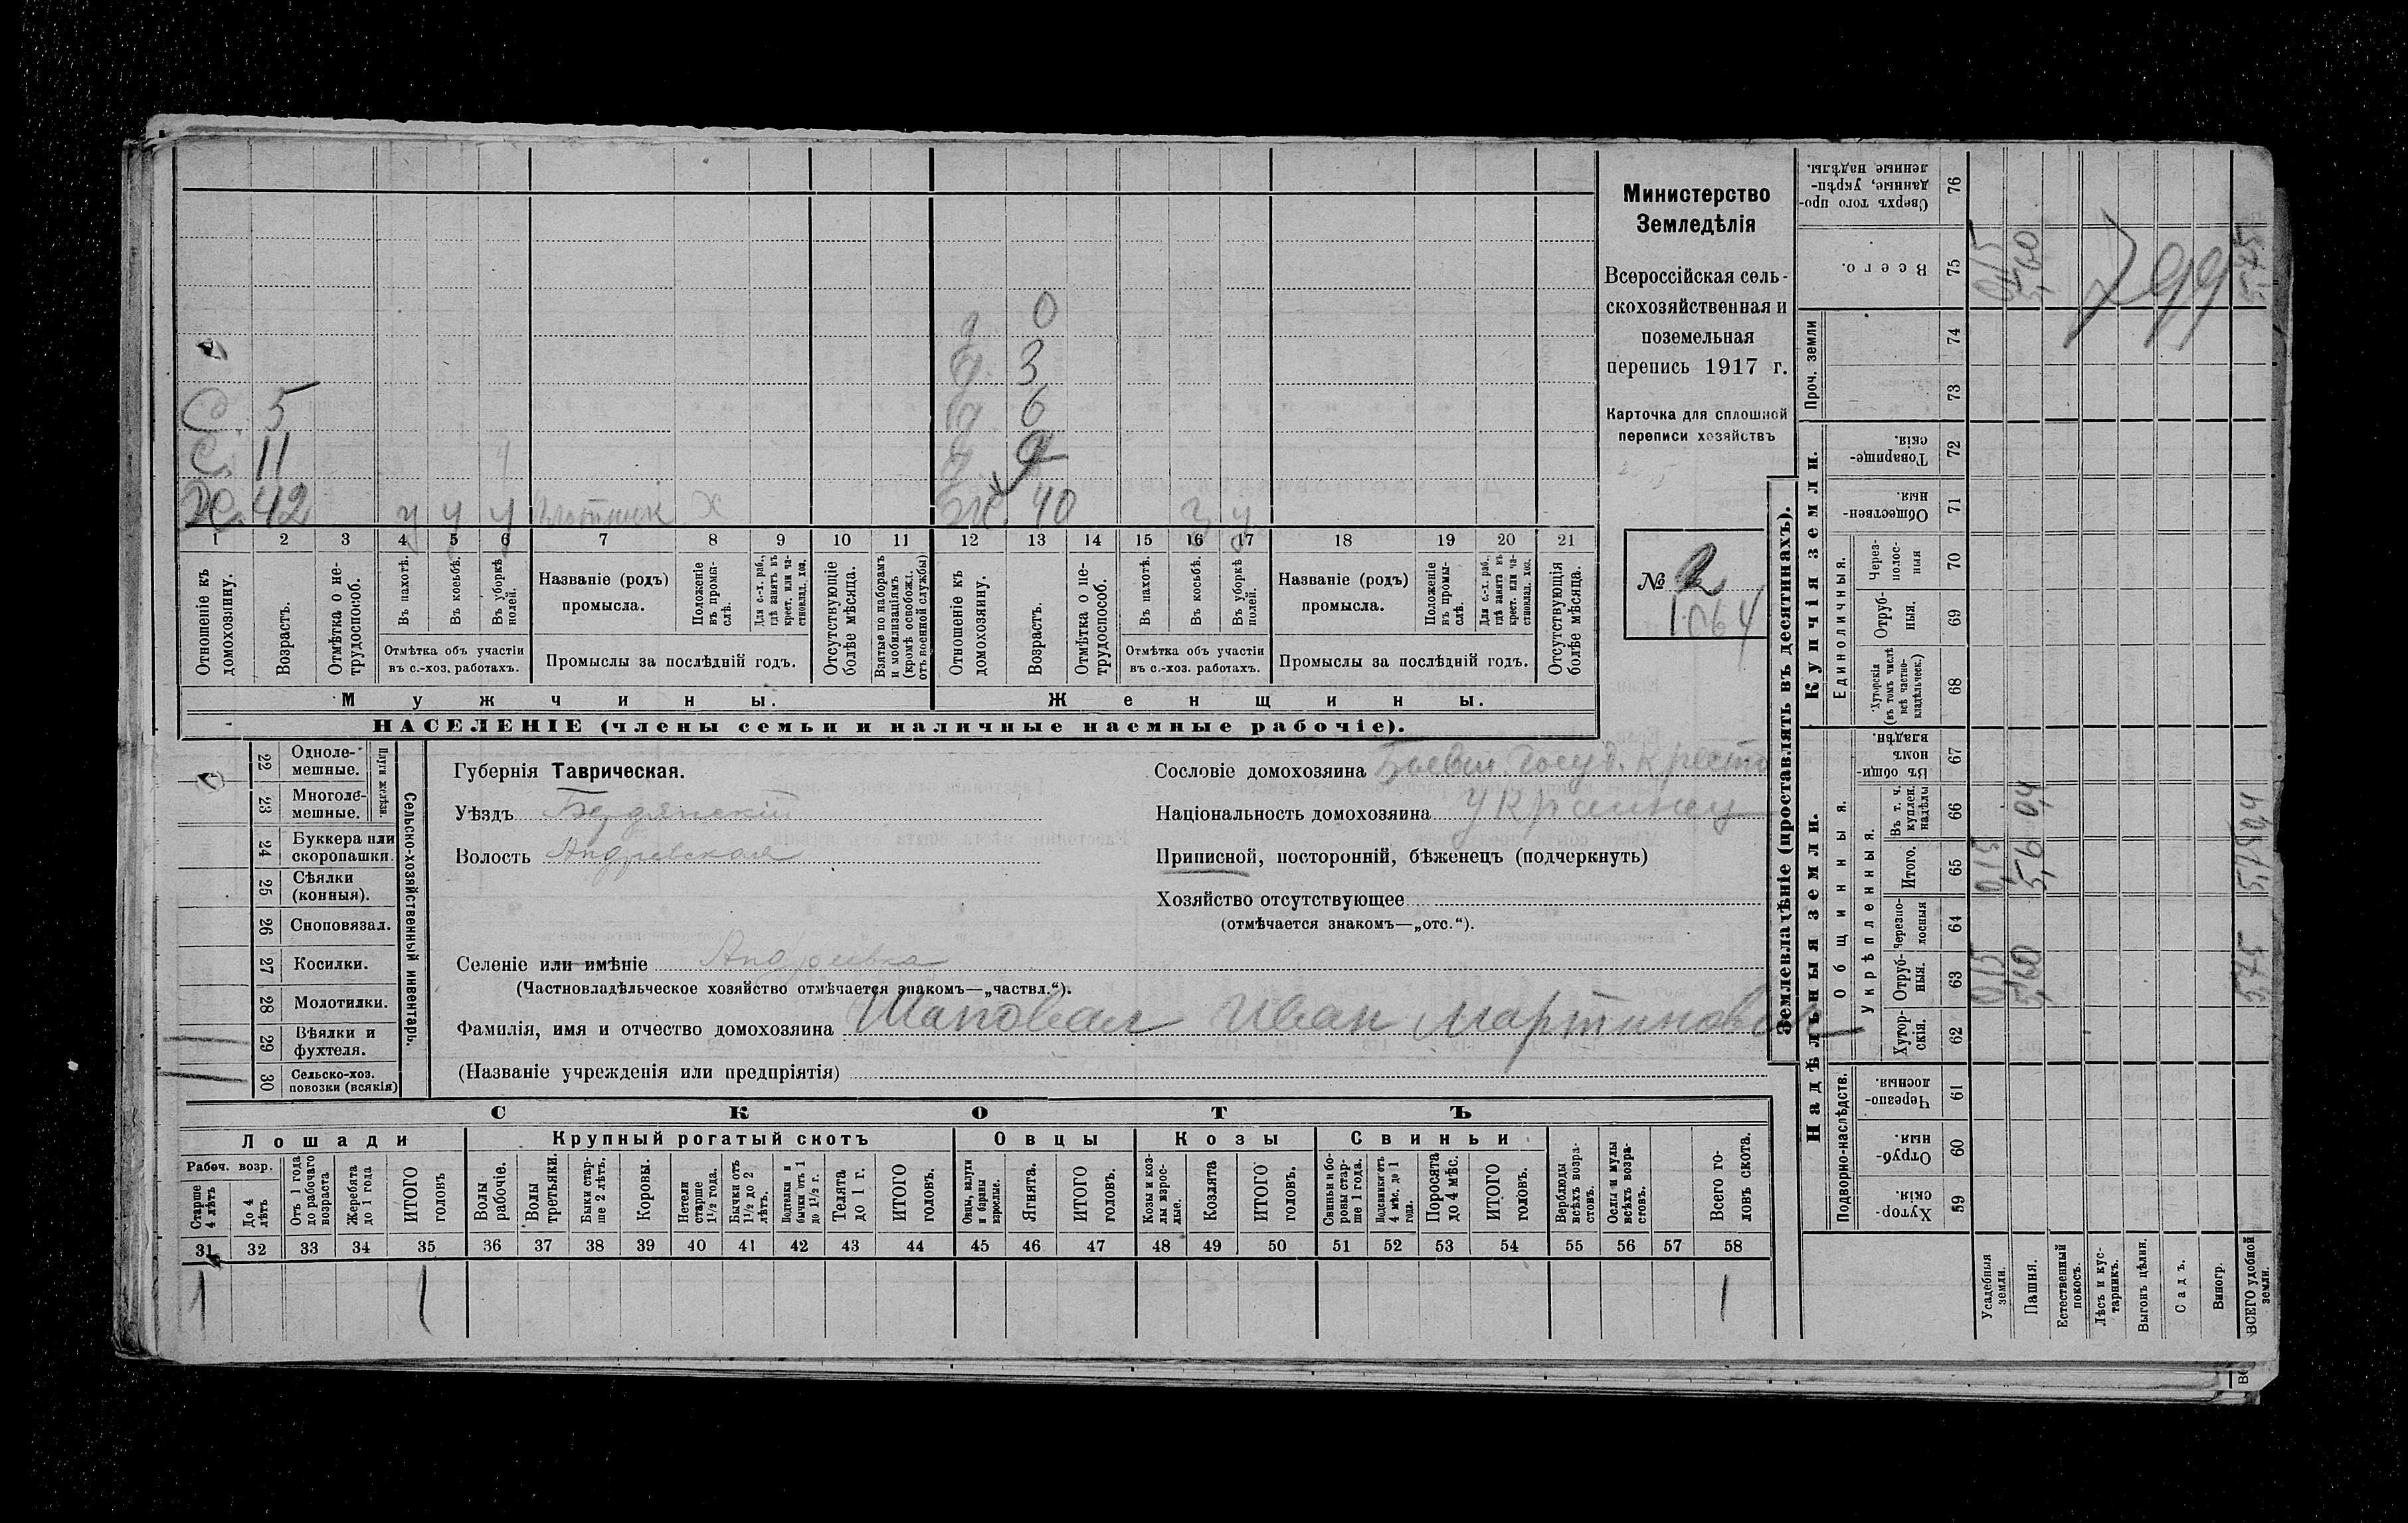 Министерство
Земледѣлія
Всероссійская сель-
скохозяйственная и
поземельная
перепись 1917 г.
Карточка для сплошной
переписи хозяйствъ
№ 2
1064
0
д. 3
С. 5 д. 6
С. 11 ч д. 9
Х. 42 ч ч ч плотник Х Ж. 40 ч ч
1 2 3 4 5 6 7 8 9 10 11 12 13 14 15 16 17 18 19 20 21
Отношеніе къ домохозяину.
Возрастъ.
Отмѣтка о не-трудоспособ.
Въ пахотѣ.
Въ косьбѣ.
Въ уборкѣ полей.
Отмѣтка объ участіи въ с.-хоз. работахъ.
Названіе (родъ) промысла.
Положеніе въ промы-слѣ.
Для с.-х. раб., гдѣ занятъ въ крест. или ча-стновлад. хоз.
Промыслы за послѣдній годъ.
Отсутствующіе болѣе мѣсяца.
Взятые по наборамъ и мобилизаціямъ (кромѣ освобожд. отъ военной службы)
Отношеніе къ домохозяину.
Возрастъ.
Отмѣтка о не-трудоспособ.
Въ пахотѣ.
Въ косьбѣ.
Въ уборкѣ полей.
Отмѣтка объ участіи въ с.-хоз. работахъ.
Названіе (родъ) промысла.
Положеніе въ промы-слѣ.
Для с.-х. раб., гдѣ занята въ крест. или ча-стновлад. хоз.
Промыслы за послѣдній годъ.
Отсутствующія болѣе мѣсяца.
Мужчины. Женщины.
НАСЕЛЕНІЕ (члены семьи и наличные наемные рабочіе).
Сельско-хозяйственный инвентарь.
Плуги желѣзн.
22 Одноле-мешные.
23 Многоле-мешные.
24 Буккера или скоропашки.
25 Сѣялки (конныя).
26 Сноповязал.
27 Косилки.
28 Молотилки.
29 Вѣялки и фухтеля.
30 Сельско-хоз. повозки (всякія)
Губернія Таврическая.
Уѣздъ Бердянскій
Волость Андреевская
Сословіе домохозяина Бывш. Госуд. крестъ
Національность домохозяина Украинец
Приписной, посторонній, бѣженецъ (подчеркнуть)
Хозяйство отсутствующее
(отмѣчается знакомъ—„отс.“).
Селеніе или имѣніе Андреевка
(Частновладѣльческое хозяйство отмѣчается знакомъ—„частвл.“).
Фамилія, имя и отчество домохозяина Шаповал Иван Мартинович
(Названіе учрежденія или предпріятія)
СКОТЪ
Лошади Крупный рогатый скотъ Овцы Козы Свиньи
Рабоч. возр.
Старше 4 лѣтъ
До 4 лѣтъ
Отъ 1 года до рабочаго возраста
Жеребята до 1 года
ИТОГО головъ
Волы рабочіе.
Волы третьяки.
Быки стар-ше 2 лѣтъ.
Коровы.
Нетели старше 1½ года.
Бычки отъ 1½ до 2 лѣтъ.
Подтелки и бычки отъ 1 до 1½ г.
Телята до 1 г.
ИТОГО головъ.
Овцы, валухи и бараны взрослые.
Ягнята.
ИТОГО головъ.
Козы и коз-лы взрос-лые.
Козлята
ИТОГО головъ.
Свиньи и бо-ровы стар-ше 1 года.
Подсвинки отъ 4 мѣс. до 1 года.
Поросята до 4 мѣс.
ИТОГО головъ.
Верблюды всѣхъ возра-стовъ.
Ослы и мулы всѣхъ возра-стовъ.
Всего го-ловъ скота.
31 32 33 34 35 36 37 38 39 40 41 42 43 44 45 46 47 48 49 50 51 52 53 54 55 56 57 58
1 1 1
Землевладѣніе (проставлять въ десятинахъ).
Надѣльныя земли. Купчія земли. Проч. земли
Подворно-наслѣдств. Общинныя. Единоличныя.
Укрѣпленныя.
Хутор-скія. 59
Отруб-ныя. 60
Черезпо-лосныя. 61
Хутор-скія. 62
Отруб-ныя. 63
Черезпо-лосныя 64
Итого. 65
Въ т. ч. куплен. надѣлы 66
Въ общин-номъ владѣн. 67
Хуторскія (въ томъ числѣ всѣ частно-владѣльческ.) 68
Отруб-ныя. 69
Через-полос-ныя 70
Обществен-ныя. 71
Товарище-скія. 72
73
74
Всего. 75
Сверхъ того про-данные, укрѣп-ленные надѣлы. 76
Усадебныя земли. 0,15 0,15 0,15
Пашня. 5,60 5,60 5,60
Естественный покосъ.
Лѣсъ и кус-тарникъ.
Выгонъ цѣлин.
Садъ.
Виногр.
ВСЕГО удобной земли. 5,75 5,75
799